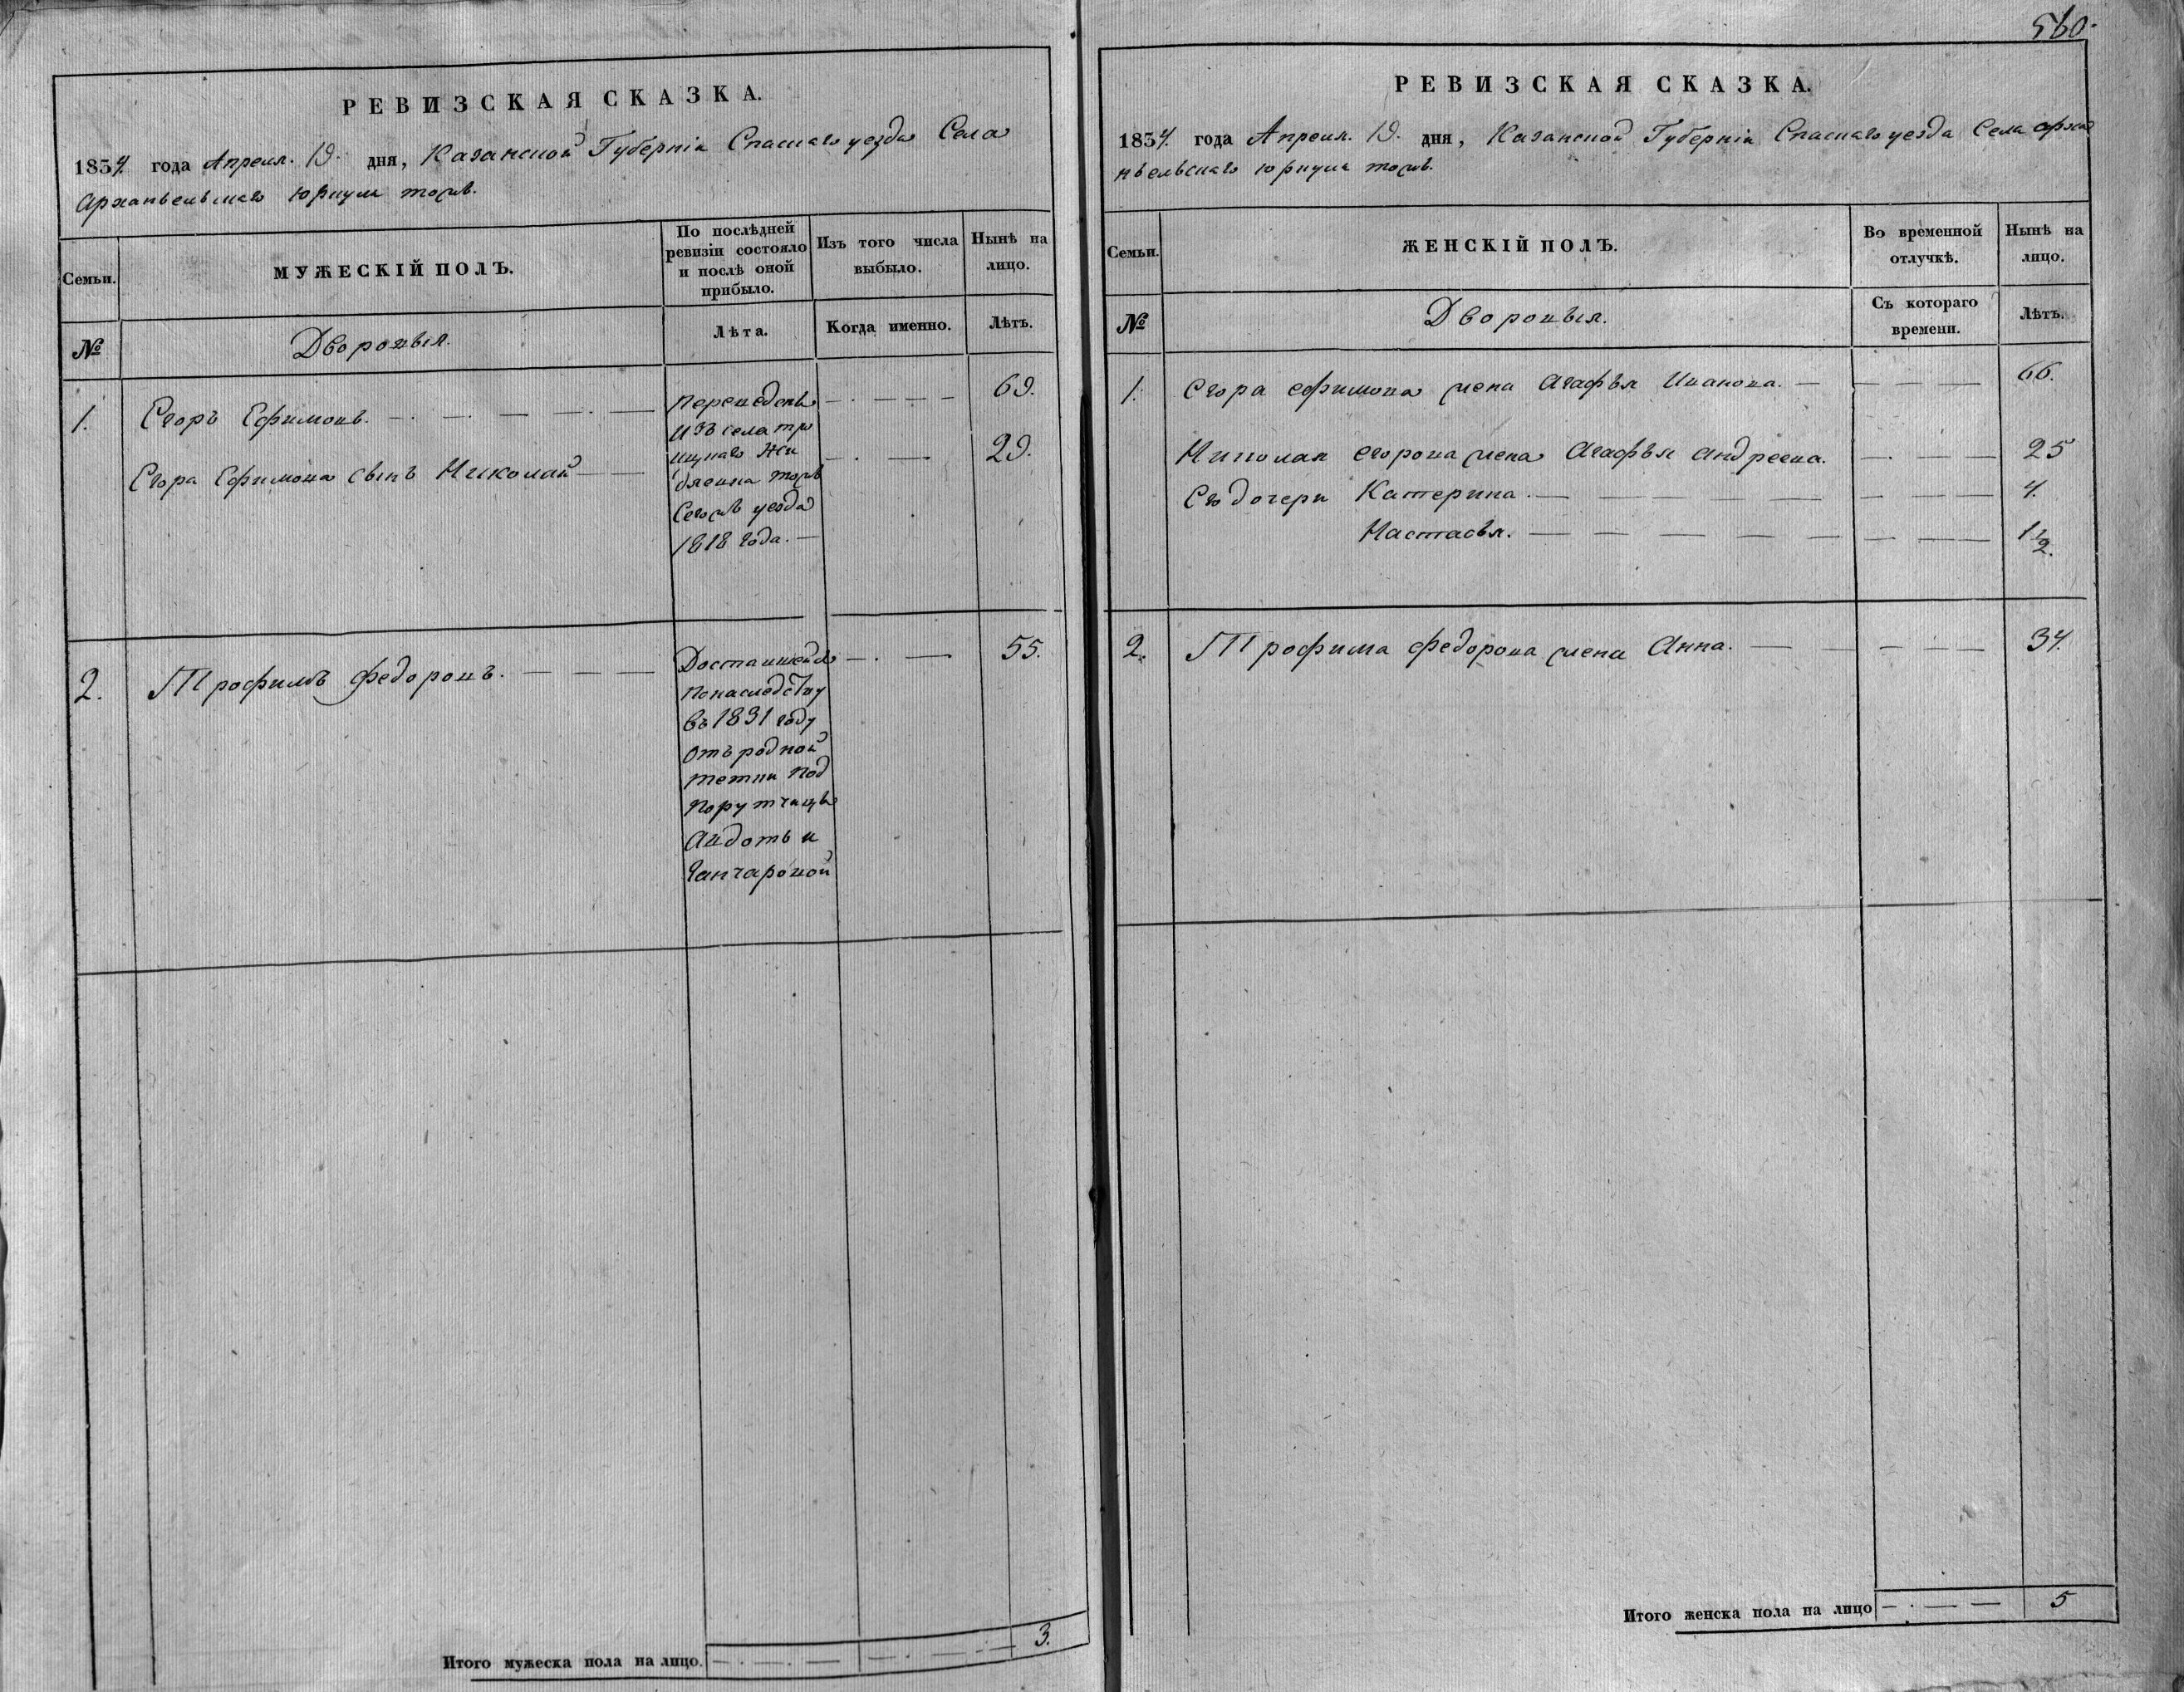 РЕВИЗСКАЯ СКАЗКА.
1834 года Апреля 19. дня, Казанской Губерніи Спаскаго уезда Села
Архангельскаго Юркуля тожъ.
Семьи.
МУЖЕСКІЙ ПОЛЪ.
По послѣдней
ревизіи состояло
и послѣ оной
прибыло.
Изъ того числа
выбыло.
Нынѣ на
лицо.
№
Дворовыя.
Лѣта.
Когда именно.
Лѣтъ.
1. Егоръ Ефимовъ. 69.
Егора Ефимова сынъ Николай 29.
Переведены
изъ села
1818 года.
2. Трофимъ Федоровъ. 55.
Доставшейся
по наследству
въ 1831 году
отъ родной
тетки под
порутчицы
Авдотьи
Ганчаровой
Итого мужеска пола на лицо. 3.
560.
РЕВИЗСКАЯ СКАЗКА.
1834 года Апреля. 19. дня, Казанской Губерніи Спаскаго уезда Села Арха
нгельскаго Юркуля тожъ.
Семьи.
ЖЕНСКІЙ ПОЛЪ.
Во временной
отлучкѣ.
Нынѣ на
лицо.
№
Дворовыя.
Съ котораго
времени.
Лѣтъ.
1. Егора Ефимова жена Агафья Иванова. 66.
Николая Егорова жена Агафья Андреева. 25
Ево дочери Катерина. 4.
Настасья. 1/2.
2. Трофима Федорова жена Анна. 34.
Итого женска пола на лицо 5